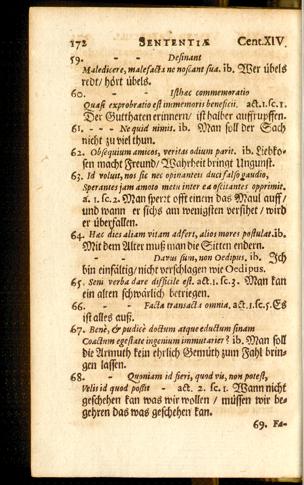 172 SENTENTIÆ Cent.XIV.
59. - - Desinant
Maledicere, malefacta ne noscant sua. ib. Wer übels
redt/ hört übels.
60. - - Isthæc commemoratio
Quasi exprobratio est immemoris beneficii. act.1.sc.1.
Der Gutthaten erinnern/ ist halber auffrupffen.
61. - - - Ne quid nimis. ib. Man soll der Sach
nicht zu viel thun.
62. Obsequium amicos, veritas odium parit. ib. Liebko-
sen macht Freund/ Wahrheit bringt Ungunst.
63. Id voluit, nos sic nec opinanteis duci falso gaudio,
Sperantes jam amoto metu inter ea oscitantes opprimit.
a. 1. sc. 2. Man sperrt offt einem das Maul auff/
und wann er sichs am wenigsten versihet/ wird
er überfallen.
64. Hac dies aliam vitam adfert, alios mores postulat. ib.
Mit dem Alter muß man die Sitten endern.
- - Davus sum, non Oedipus. ib. Ich
bin einfältig/ nicht verschlagen wie Oedipus.
65. Sem verba dare difficile est. act.1.sc.3. Man kan
ein alten schwärlich betriegen.
66. - - Facta transacta omnia. act.1.sc.5. Es
ist alles auß.
67. Benè, & pudicè doctum atque eductum sinam
Coactum egestate ingenium immutarier? ib. Man soll
die Armuth kein ehrlich Gemüth zum Fahl brin-
gen lassen.
68. - Quoniam id fieri, quod vis, non potest,
Velis id quod possit - act. 2. sc. 1. Wann nicht
geschehen kan was wir wollen/ müssen wir be-
gehren das was geschehen kan.
69. Fa-